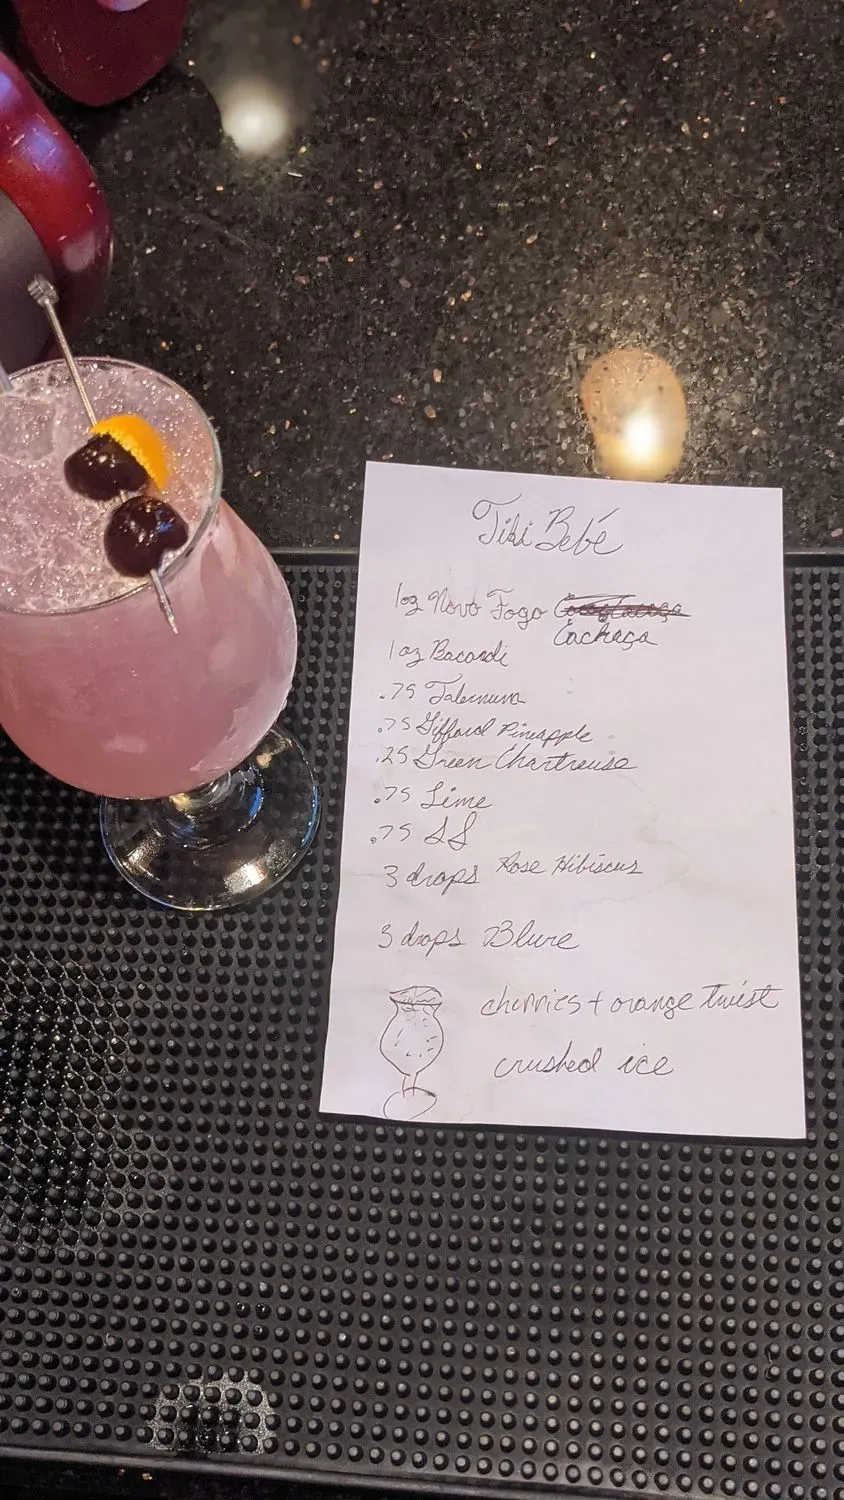 Tiki Bebé
1oz Novo Fogo
Cachaça
1oz Bacardi
.75 Falernum
.75 Giffard Pineapple
.25 Green Chartreuse
.75 Lime
.75 SS
3 drops Rose Hibiscus
3 drops
cherries + orange twist
crushed ice